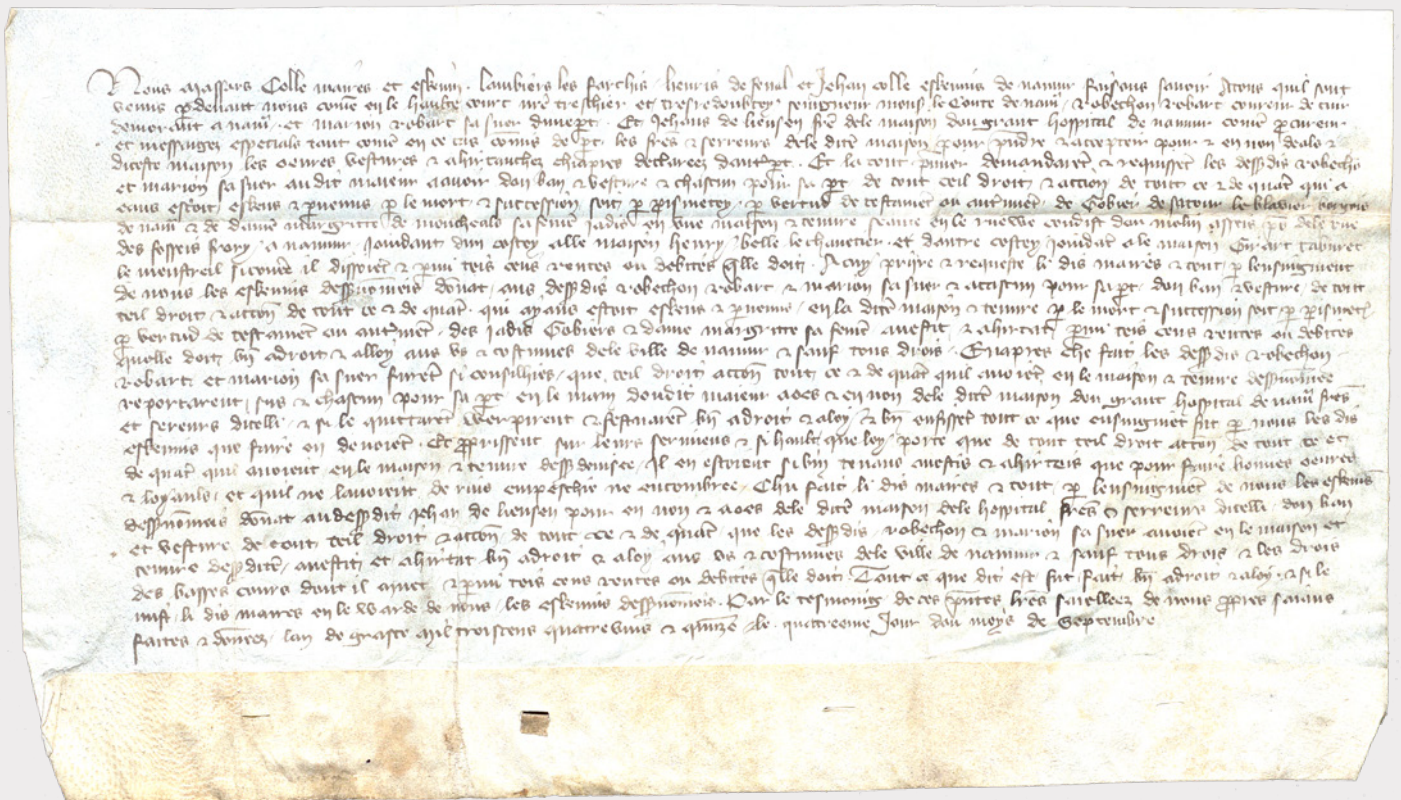 Nous Massars Colle maires et eskevin . Lambiers les Farchis . henris de fenal et Jehan Colle eskevins de namur faisons savoir A tous quil sont
venus p devant nous come en le haulte court nre treschier et tresredoubtey seingneur mons le Conte de nam . Robechon Robart coureur de cuir
demorant a nam . et marion Robart sa suer dunept . Et Jehans de liernen fre dele maison dou grant hospital de namur come pcureur
et messagez especials tant come en ce cas comis de pt les fres & serreurs dele dicte maison pour pndre & accepteir pour & en non deals &
diceste maison les oevres vestures & ahirtanchez chiapres declareez dautrept . Et la tout pmier demandaret & requisset les dessdis Robecho
et marion sa suer audit maieur a avoir don ban & vesture & chascun pour sa pt de tout teil droit & action de tout ce & de quat qui a
eaus estoit eskeus & pvenus p le mort & succession soit p pismetey . p vertud de testamet ou autmet . de Gobier de le blavier borgois
de nam & de dame margritte de moncheals sa feme jadis en une maison & tenure seante en le ruewe condist dou molin asseis ps dele rue
des fosseis frory a namur . Joindant dun costey alle maison henry belle le chanetier . et dautre costey joindat a le maison Girart tabure
le menstreil sicome il dissoiet & pmi teis cens rentes ou debites qlle doit . A cuy priire & requeste li dis maires & tout p lensingment
de nous les eskevins dessnomeis donat aus dessdis Robechon Robart & marion sa suer & a chascun pour sa pt don ban & vesture de tout
teil droit & accon de tout ce & de quat . qui a yaus estoit eskeus & pvenus en la dicte maison & tenure p le mort & succession soit p pismetey
p vertud de testamet ou autmet . des jadis Gobiers & dame margritte sa feme avestit & ahirtat pmi teis cens rentes ou debites
quelle doit bn a droit & a loy aus us & costumes dele ville de namur & sauf tous drois . En apres che fait les dessdis Robechon
Robart et marion sa suer furet si consilhies que teil droit accon tout ce & de quat quil avoiet en le maison & tenure dessnomee
reportarent sus & chascun pour sa pt en le main doudit maieur a oes & en non dele dicte maison dou grant hospital de nam fres
et sereurs dicelli . & si le quittaret werpirent & bn a droit & a loy & bn enfisset tout ce que ensinguiet fut p nous les dis
eskevins que faire en devoiet . Et prissent sur leurs seriniens & si hault que loy porte que de tout teil droit accon de tout ce et
de quat quil avoient en le maison & tenure dess devisee . Il en estoient si bin tenans avestis & ahirteis que pour faire bonnes oevres
& loyauls . et quil ne lavoient de rins empeschie ne encombree . Chu fait li dis maires & tout p lensingmet de nous les eskevins
dessnomeis donat audessdit Jehan de liernen pour en non & a oes dele dicte maison dele hospital fres & serreurs dicelli . don ban
et vesture de tout teil droit & accon de tout ce & de quat . que les dessdis Robechon & marion sa suer avoiet en le maison et
tenure dessdite . avestit et ahirtat bn a droit & a loy aus us & costumes dele ville de namur & sauf tous drois & les drois
des basses cours dont il muet . & pmi teis cens rentes ou debites qlle doit . Tout ce que dit est fut fait bn a droit & a loy . & si le
mist li dis maires en le warde de nous les eskevins dessnomeis . Par le tesmoing de ces pntes lres saielleez de nous ppres saiaus
faites & doneez lan de grasce mil troiscens quattrevins & quize le quattreme Jour dou moys de Septembre